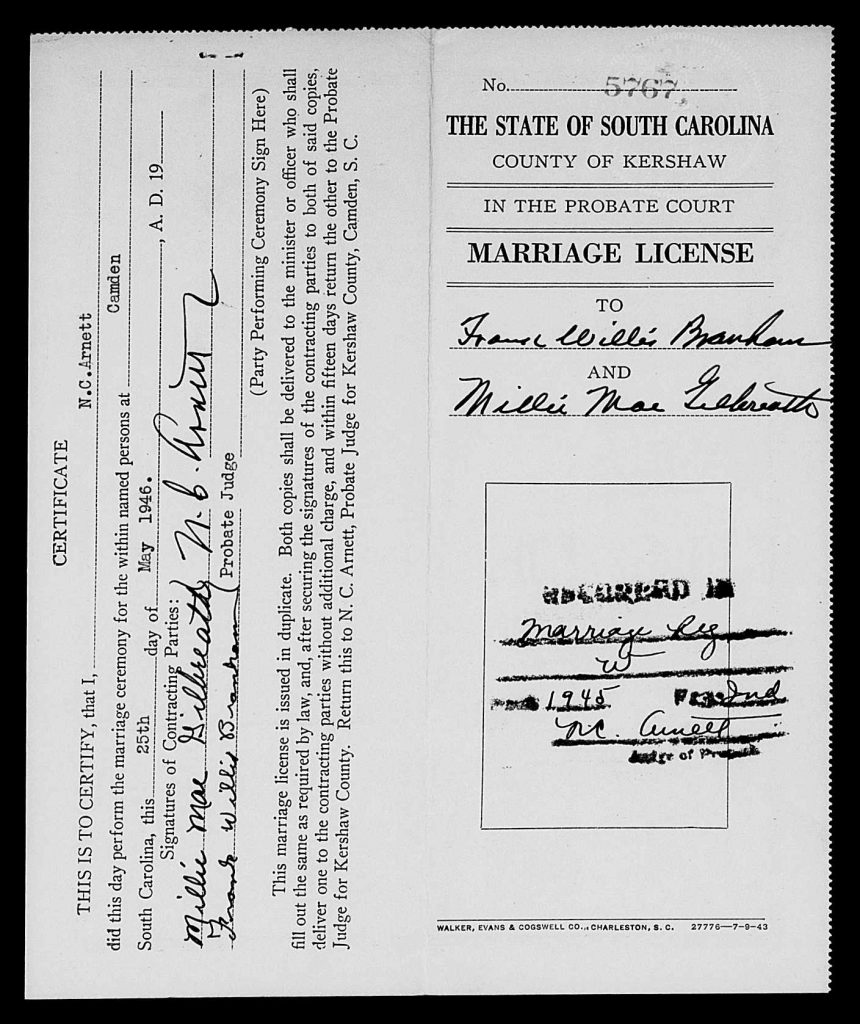 CERTIFICATE
THIS IS TO CERTIFY, that I, N.C.Arnett
did this day perform the marriage ceremony for the within named persons at Camden
South Carolina, this 25th day of May 1946. , A. D. 19
Signatures of Contracting Parties:
Millie Mae Gilbreath N. C. Arnett
Frank Willis Branham ( Probate Judge
(Party Performing Ceremony Sign Here)
This marriage license is issued in duplicate. Both copies shall be delivered to the minister or officer who shall
fill out the same as required by law, and, after securing the signatures of the contracting parties to both of said copies,
deliver one to the contracting parties without additional charge, and within fifteen days return the other to the Probate
Judge for Kershaw County. Return this to N. C. Arnett, Probate Judge for Kershaw County, Camden, S. C.
No. 5767
THE STATE OF SOUTH CAROLINA
COUNTY OF KERSHAW
IN THE PROBATE COURT
MARRIAGE LICENSE
TO
Frank Willis Branham
AND
Millie Mae Gilbreath
RECORDED IN
Marriage Reg
W
1945
N.C. Arnett
Judge of Probate
WALKER, EVANS & COGSWELL CO., CHARLESTON, S. C. 27776—7-9-43